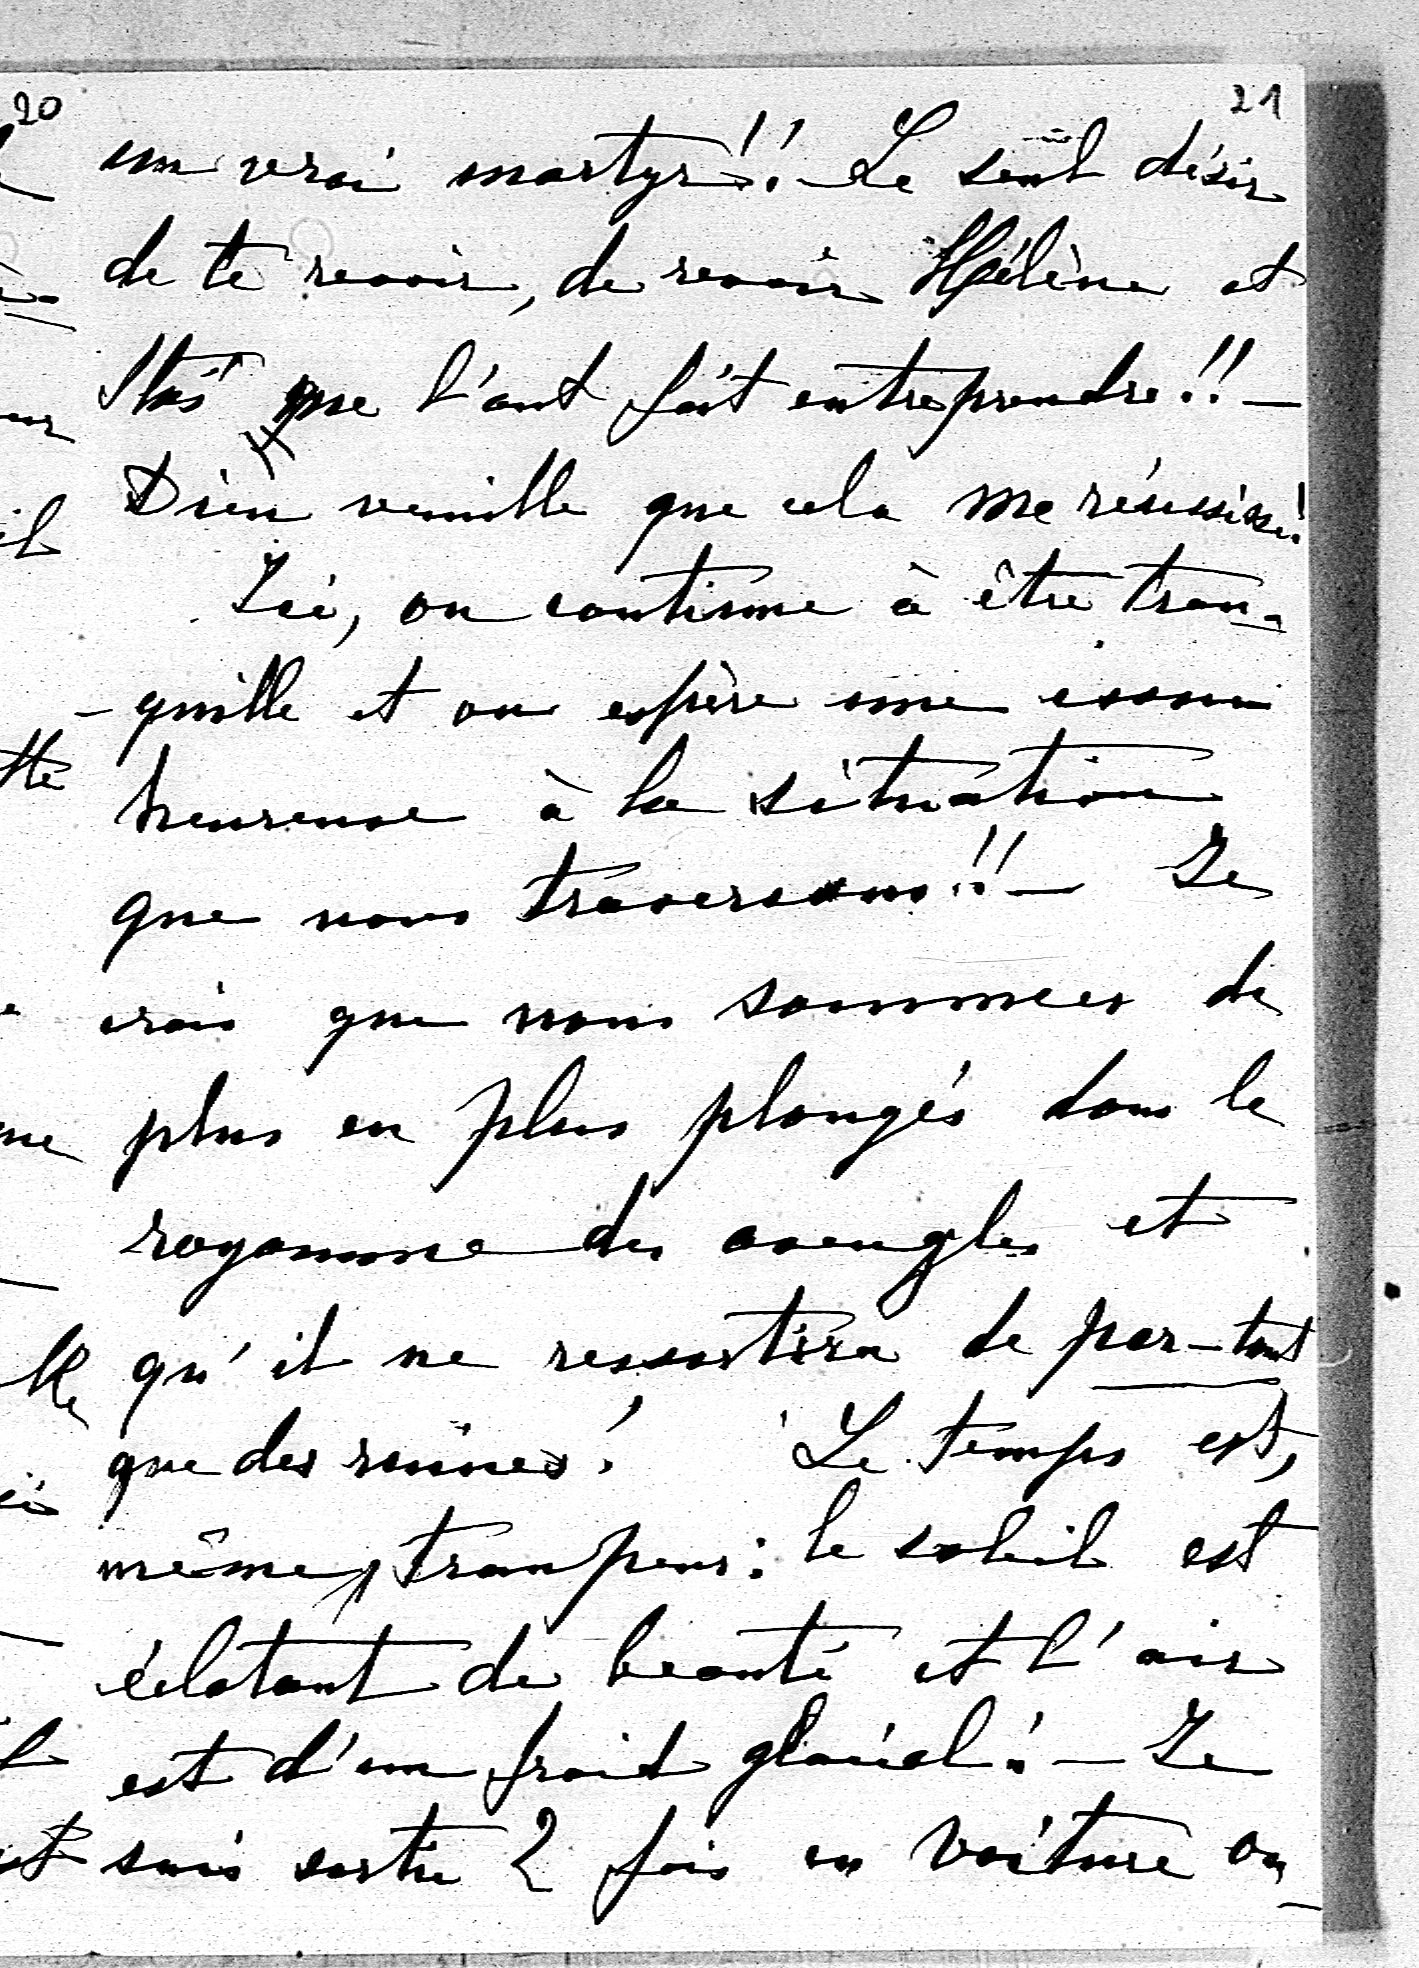 20
21
un vrai martyr!! - Le seul désir
de te revoir, de revoir Hélène et
Stas me l'ont fait entreprendre!! -
Dieu veuille que cela me réussisse!
Ici, on continue à être tran-
-quille et on espère une issue
heureuse à la situation
que nous traversons!! - Je
crois que nous sommes de
plus en plus plongés dans le
royaume des aveugles et
qu'il ne ressortira de par-tout
que des ruines! Le temps est,
même, trompeur: le soleil est
éclatant de beauté et l'air
est d'un froid glacial! - Je
suis sortie 2 fois en voiture ou-